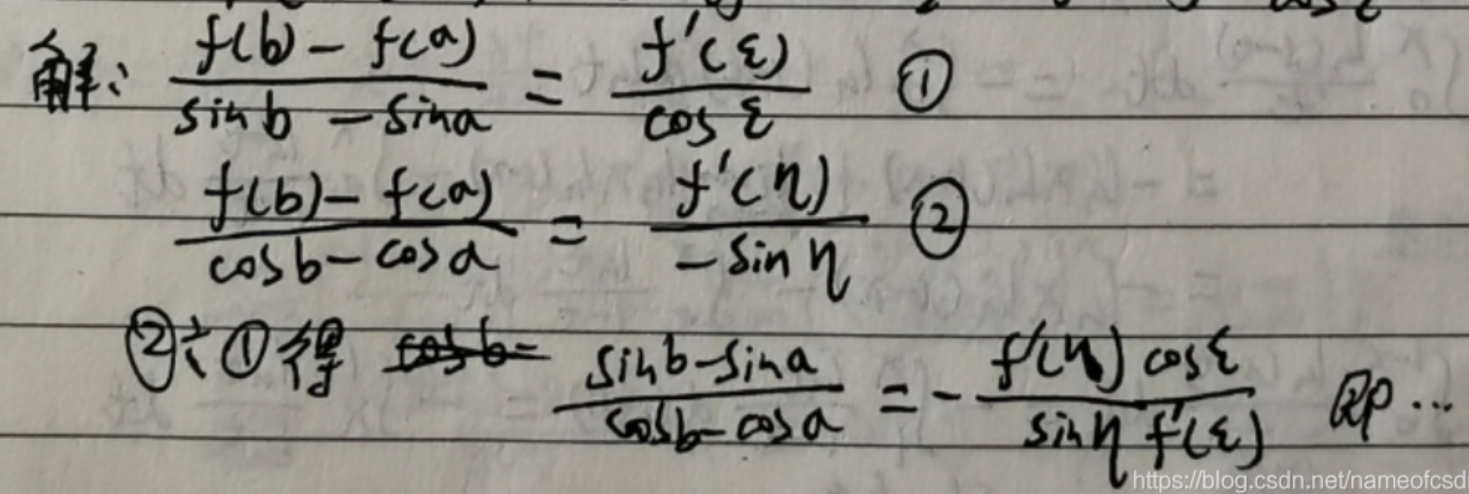 解: \frac{f(b)-f(a)}{\sin b-\sin a} = \frac{f'(ξ)}{\cos ξ} ①
\frac{f(b)-f(a)}{\cos b-\cos a} = \frac{f'(η)}{-\sin η} ②
②÷①得 \frac{\sin b-\sin a}{\cos b-\cos a} = -\frac{f'(η)\cos ξ}{\sin η f'(ξ)} 即...
https://blog.csdn.net/nameofcsdn